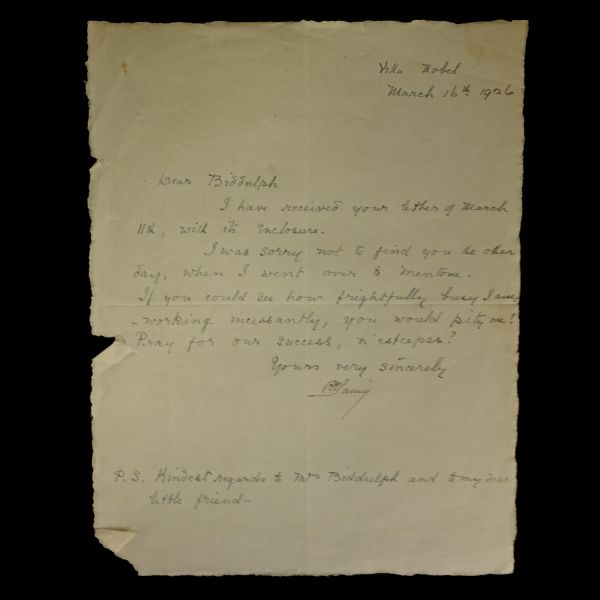 Villa Nobel
March 16th 1926
Dear Biddulph
I have received your letter of March
11th, with its Enclosure.
I was sorry not to find you the other
day, when I went over to Mentone.
If you could see how frightfully busy I am,
- working incessantly, you would pity me!
Pray for our success, n'estcepas?
Yours very sincerely
P.S. Kindest regards to Mrs Biddulph and to my dear
little friend-